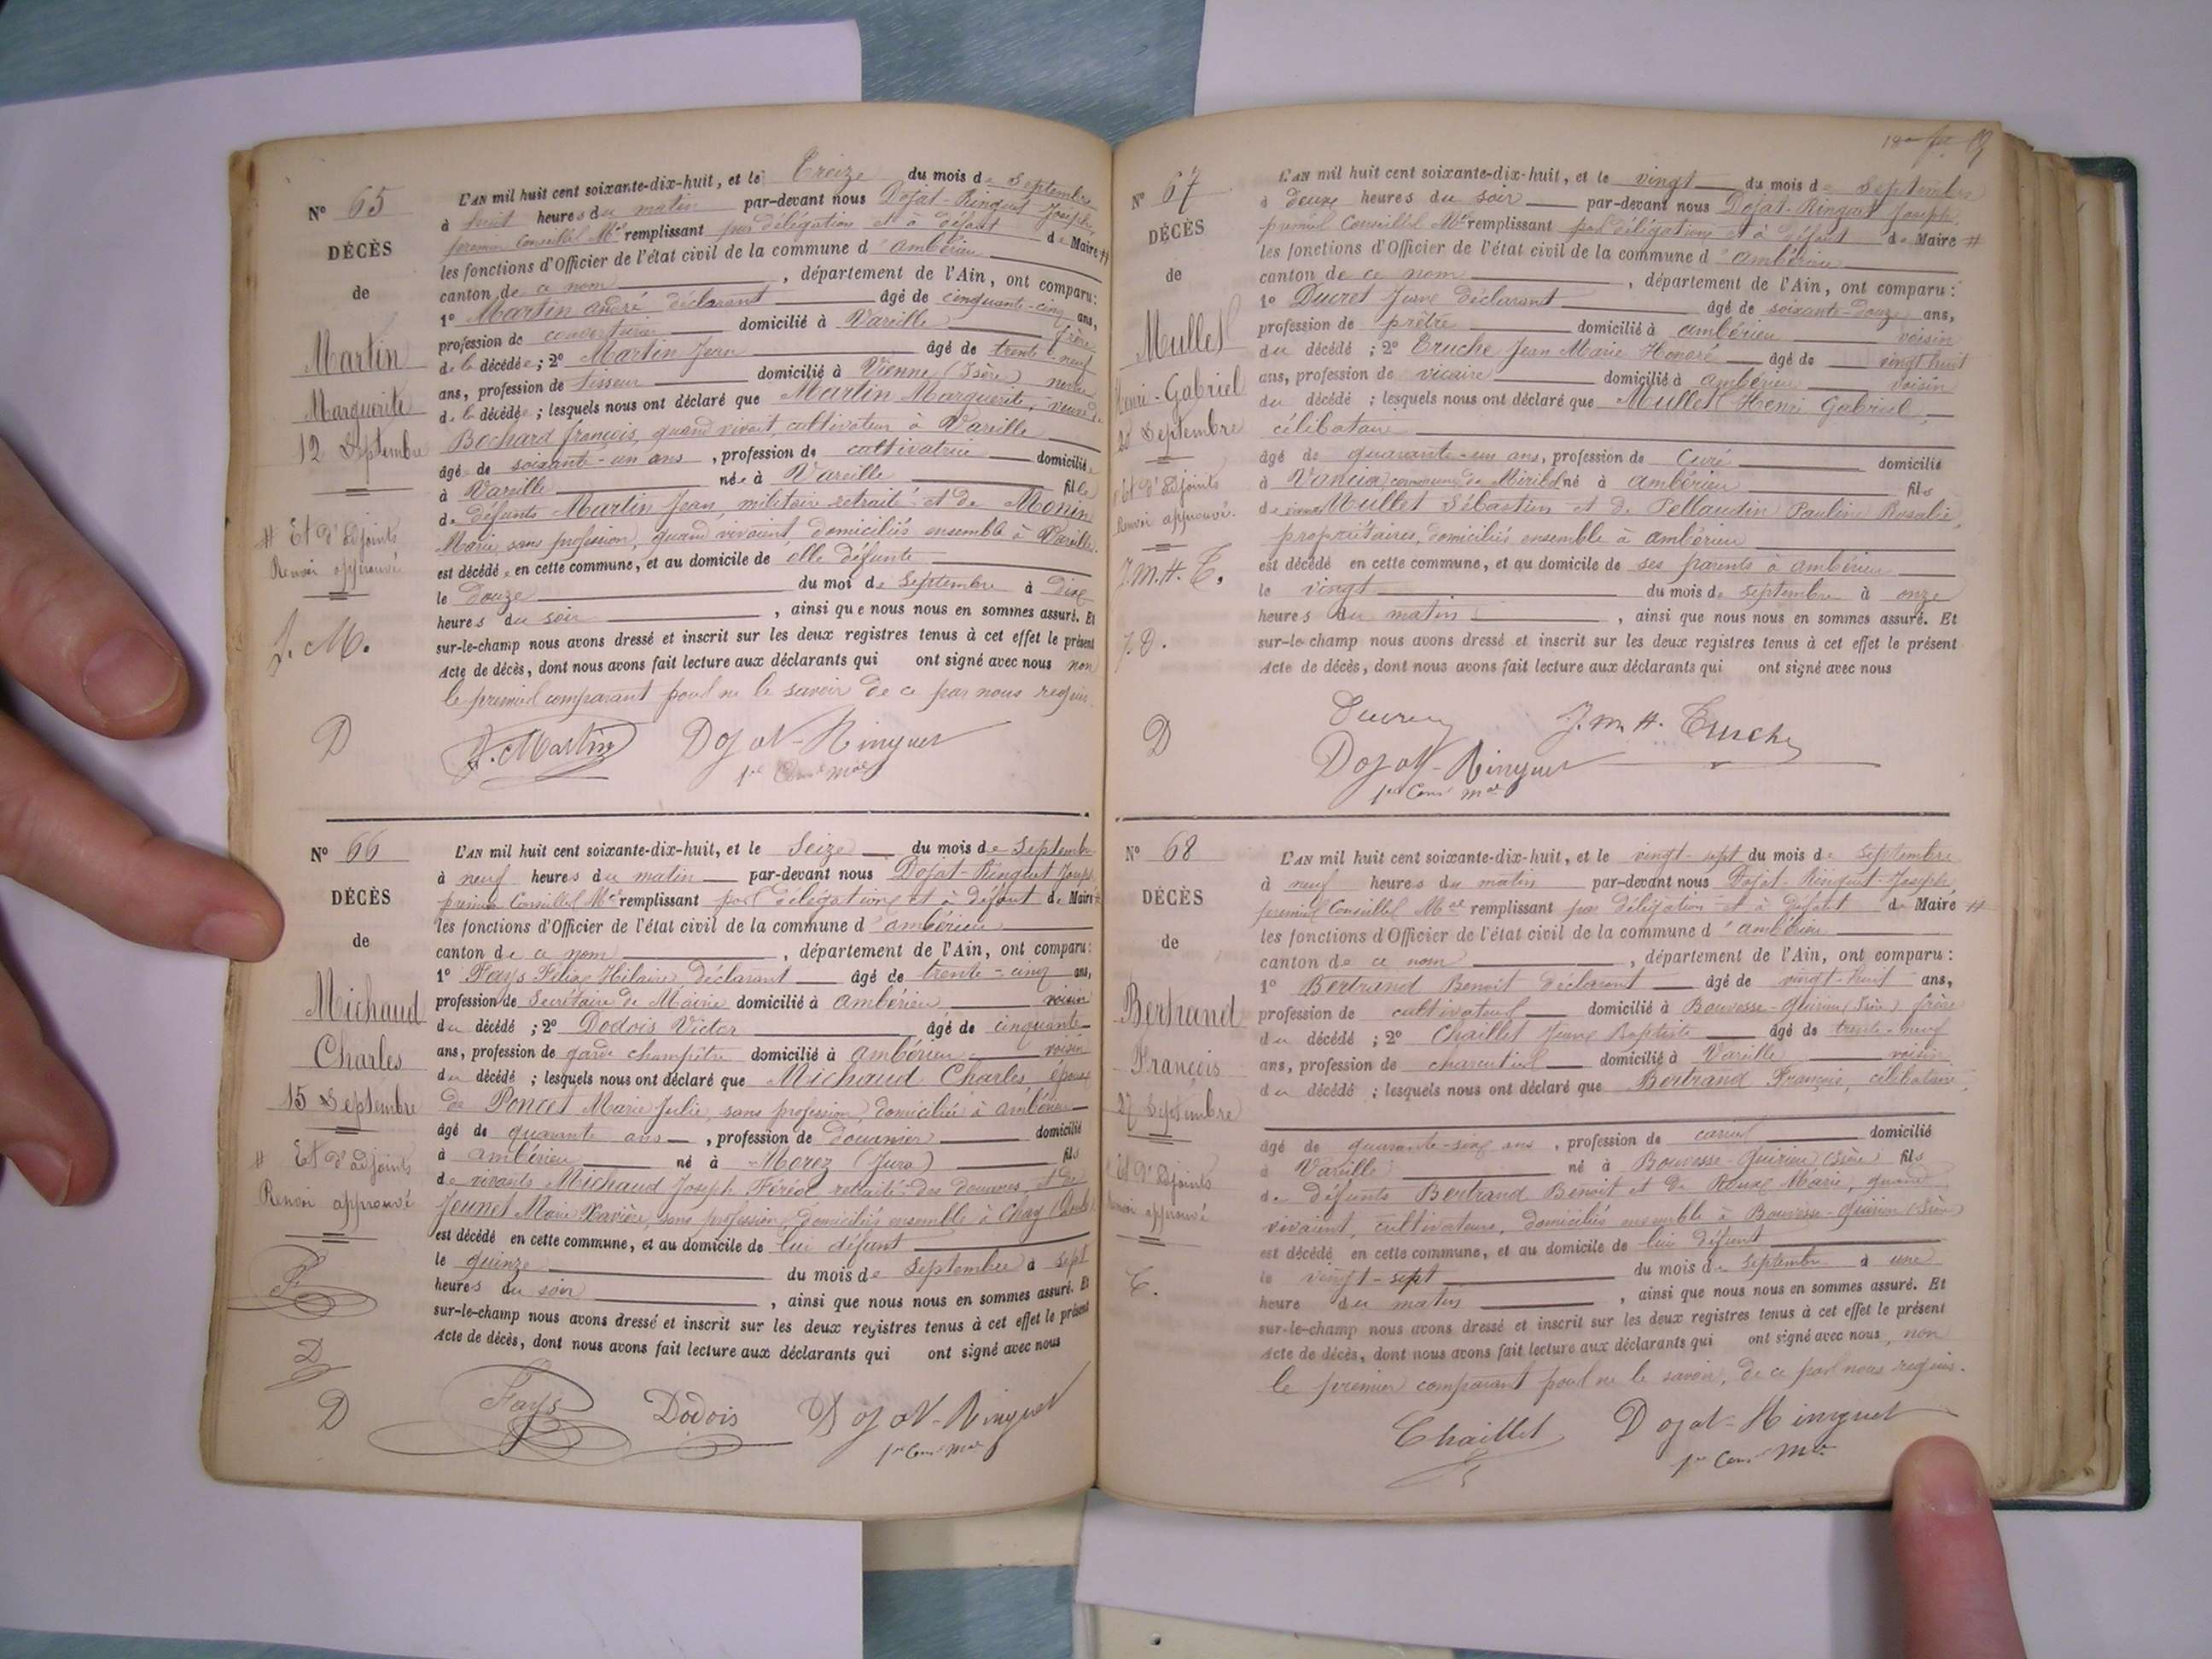 Nº 65
DÉCÈS
de
Martin
Marguerite
12 Septembre
# Et d'adjoints
Renvoi approuvé
J. M.
D
L'AN mil huit cent soixante-dix-huit, et le Treize du mois de Septembre
à huit heures du matin par-devant nous Dojat-Ringuet Joseph,
premier Conseiller Mal remplissant par délégation et à défaut de Maire #
les fonctions d'Officier de l'état civil de la commune d'ambérieu
canton de ce nom, département de l'Ain, ont comparu:
1º Martin andré déclarant âgé de cinquante-cinq ans,
profession de couverturier domicilié à Vareille frère
de la décédée; 2º Martin Jean âgé de trente-neuf
ans, profession de tisseur domicilié à Vienne (Isère) neveu
de la décédée; lesquels nous ont déclaré que Martin Marguerite, veuve de
Bochard françois, quand vivait, cultivateur à Vareille
âgée de soixante-un ans, profession de cultivatrice domiciliée
à Vareille née à Vareille fille
de défunts Martin Jean, militaire retraité et de Monin
Marie, sans profession, quand vivaient, domiciliés ensemble à Vareille.
est décédée en cette commune, et au domicile de elle défunte
le douze du moi de Septembre à dix
heures du soir, ainsi que nous nous en sommes assuré. Et
sur-le-champ nous avons dressé et inscrit sur les deux registres tenus à cet effet le présent
Acte de décès, dont nous avons fait lecture aux déclarants qui ont signé avec nous non
le premier comparant pour ne le savoir de ce par nous requis.
J. Martin Dojat-Ringuet
1er Cons Mal
Nº 66
DÉCÈS
de
Michaud
Charles
15 Septembre
# Et d'adjoints
Renvoi approuvé
F
D
D
L'AN mil huit cent soixante-dix-huit, et le Seize du mois de Septembre
à neuf heures du matin par-devant nous Dojat-Ringuet Joseph,
premier Conseiller Mal remplissant par délégation et à défaut de Maire #
les fonctions d'Officier de l'état civil de la commune d'ambérieu
canton de ce nom, département de l'Ain, ont comparu:
1º Fays Félix Hilaire déclarant âgé de trente-cinq ans,
profession de Secrétaire de Mairie domicilié à ambérieu voisin
du décédé; 2º Dodois Victor âgé de cinquante
ans, profession de garde champêtre domicilié à ambérieu voisin
du décédé; lesquels nous ont déclaré que Michaud Charles, époux
de Poncet Marie Julie, sans profession, domiciliée à ambérieu
âgé de quarante ans, profession de douanier domicilié
à ambérieu né à Morez (Jura) fils
de vivants Michaud Joseph Féréol retraité des douanes et de
Jeunet Marie Xavière, sans profession, domiciliés ensemble à Chay (Doubs)
est décédé en cette commune, et au domicile de lui défunt
le quinze du mois de Septembre à sept
heures du soir, ainsi que nous nous en sommes assuré. Et
sur-le-champ nous avons dressé et inscrit sur les deux registres tenus à cet effet le présent
Acte de décès, dont nous avons fait lecture aux déclarants qui ont signé avec nous
Fays Dodois Dojat-Ringuet
1er Cons Mal
Nº 67
DÉCÈS
de
Mullet
Henri-Gabriel
20 Septembre
# Et d'adjoints
Renvoi approuvé.
J. M. H. T.
J. D.
D
L'AN mil huit cent soixante-dix-huit, et le vingt du mois de Septembre
à deux heures du soir par-devant nous Dojat-Ringuet Joseph,
premier Conseiller Mal remplissant par délégation et à défaut de Maire #
les fonctions d'Officier de l'état civil de la commune d'ambérieu
canton de ce nom, département de l'Ain, ont comparu:
1º Ducret Jean déclarant âgé de soixante-douze ans,
profession de prêtre domicilié à ambérieu voisin
du décédé; 2º Truche Jean Marie Honoré âgé de vingt huit
ans, profession de vicaire domicilié à ambérieu voisin
du décédé; lesquels nous ont déclaré que Mullet Henri Gabriel,
célibataire
âgé de quarante-un ans, profession de Curé domicilié
à Vancia, commune de Miribel né à ambérieu fils
de Mullet Sébastien et de Pellaudin Pauline Rosalie,
propriétaires, domiciliés ensemble à ambérieu
est décédé en cette commune, et au domicile de ses parents à ambérieu
le vingt du mois de Septembre à onze
heures du matin, ainsi que nous nous en sommes assuré. Et
sur-le-champ nous avons dressé et inscrit sur les deux registres tenus à cet effet le présent
Acte de décès, dont nous avons fait lecture aux déclarants qui ont signé avec nous
Ducret J. M. H. Truche
Dojat-Ringuet
1er Cons Mal
Nº 68
DÉCÈS
de
Bertrand
François
27 Septembre
# Et d'adjoints
Renvoi approuvé
C.
L'AN mil huit cent soixante-dix-huit, et le vingt-sept du mois de Septembre
à neuf heures du matin par-devant nous Dojat-Ringuet Joseph,
premier Conseiller Mal remplissant par délégation et à défaut de Maire #
les fonctions d'Officier de l'état civil de la commune d'ambérieu
canton de ce nom, département de l'Ain, ont comparu:
1º Bertrand Benoit déclarant âgé de vingt-huit ans,
profession de cultivateur domicilié à Bouvesse-Quirieu (Isère) frère
du décédé; 2º Chaillet Jean Baptiste âgé de trente-neuf
ans, profession de domicilié à Vareille voisin
du décédé; lesquels nous ont déclaré que Bertrand François, célibataire,
âgé de quarante-six ans, profession de domicilié
à Vareille né à Bouvesse-Quirieu (Isère) fils
de défunts Bertrand Benoit et de Roux Marie, quand
vivaient, cultivateurs, domiciliés ensemble à Bouvesse-Quirieu (Isère)
est décédé en cette commune, et au domicile de lui défunt
le vingt-sept du mois de Septembre à une
heure du matin, ainsi que nous nous en sommes assuré. Et
sur-le-champ nous avons dressé et inscrit sur les deux registres tenus à cet effet le présent
Acte de décès, dont nous avons fait lecture aux déclarants qui ont signé avec nous, non
le premier comparant pour ne le savoir, de ce par nous requis.
Chaillet Dojat-Ringuet
1er Cons Mal